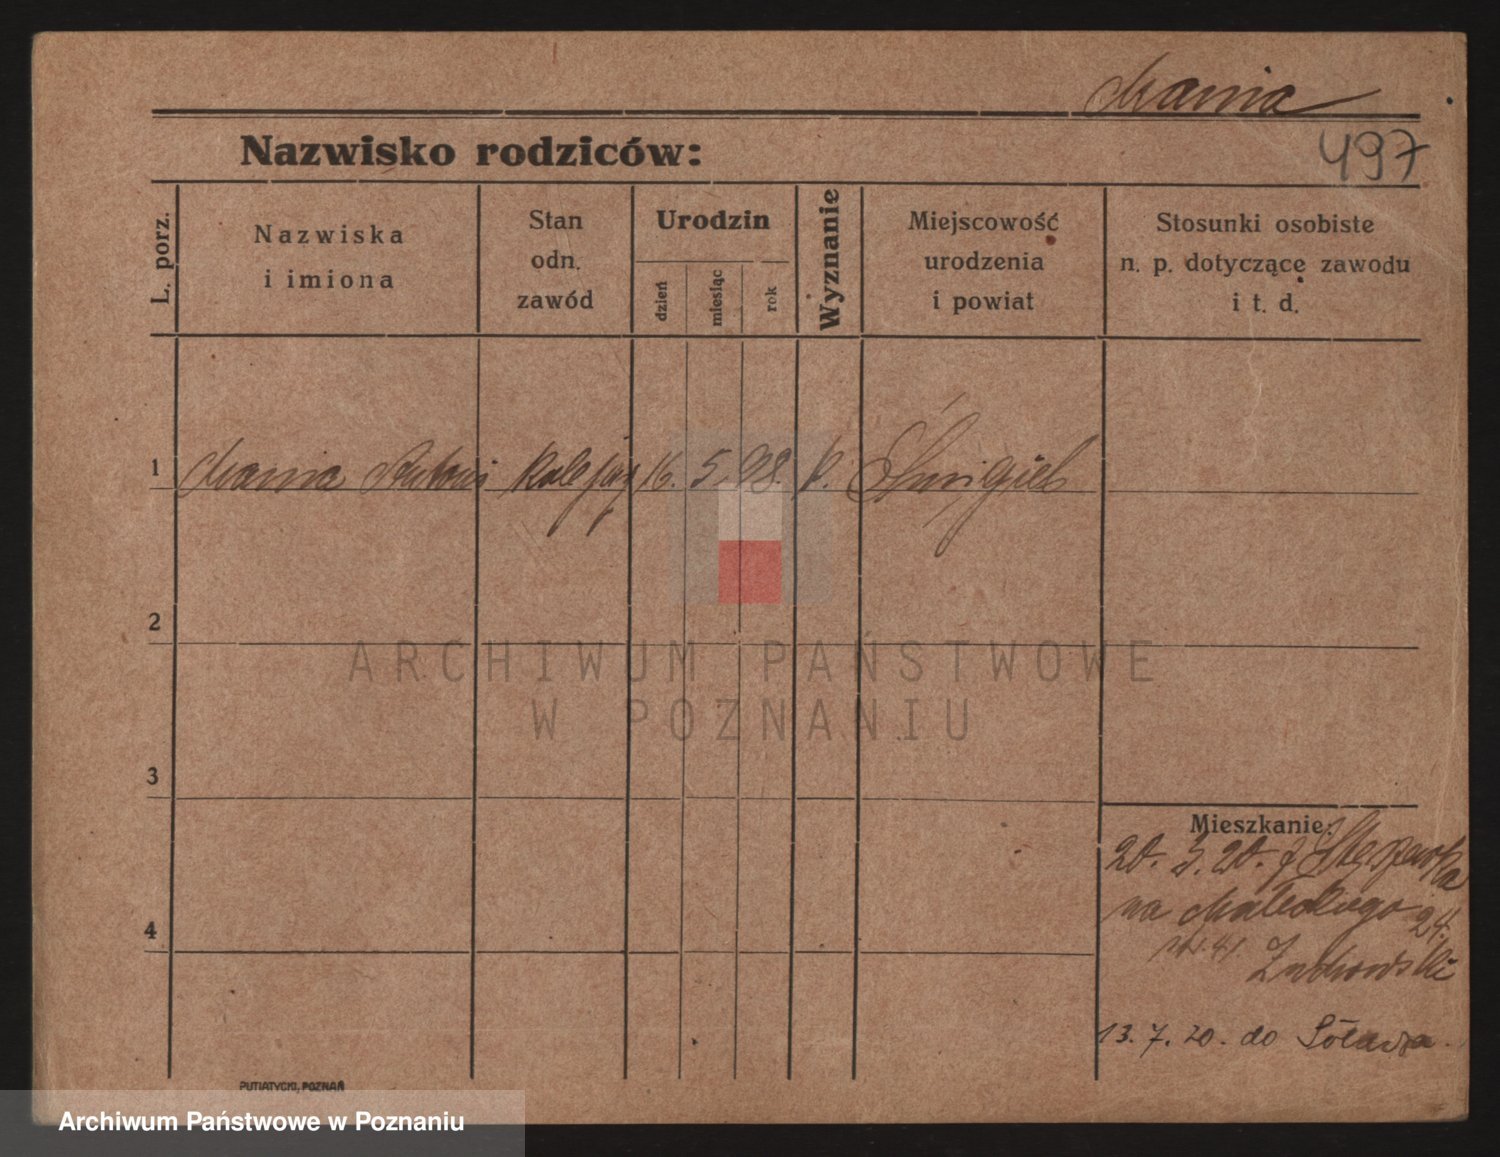 Mania
Nazwisko rodziców:
497
L. porz.
Nazwiska
i imiona
Stan
odn.
zawód
Urodzin
dzień
miesiąc
rok
Wyznanie
Miejscowość
urodzenia
i powiat
Stosunki osobiste
n. p. dotyczące zawodu
i t. d.
1
Mania Antoni kolejarz 16. 5. 98. k. Śmigiel
2
ARCHIWUM PAŃSTWOWE
W POZNANIU
3
Mieszkanie:
20. 3. 20. z Stęszewka
na Małeckiego 24.
Żuchowski
4
13. 7. 20. do Sołacza.
PUTIATYCKI, POZNAŃ
Archiwum Państwowe w Poznaniu